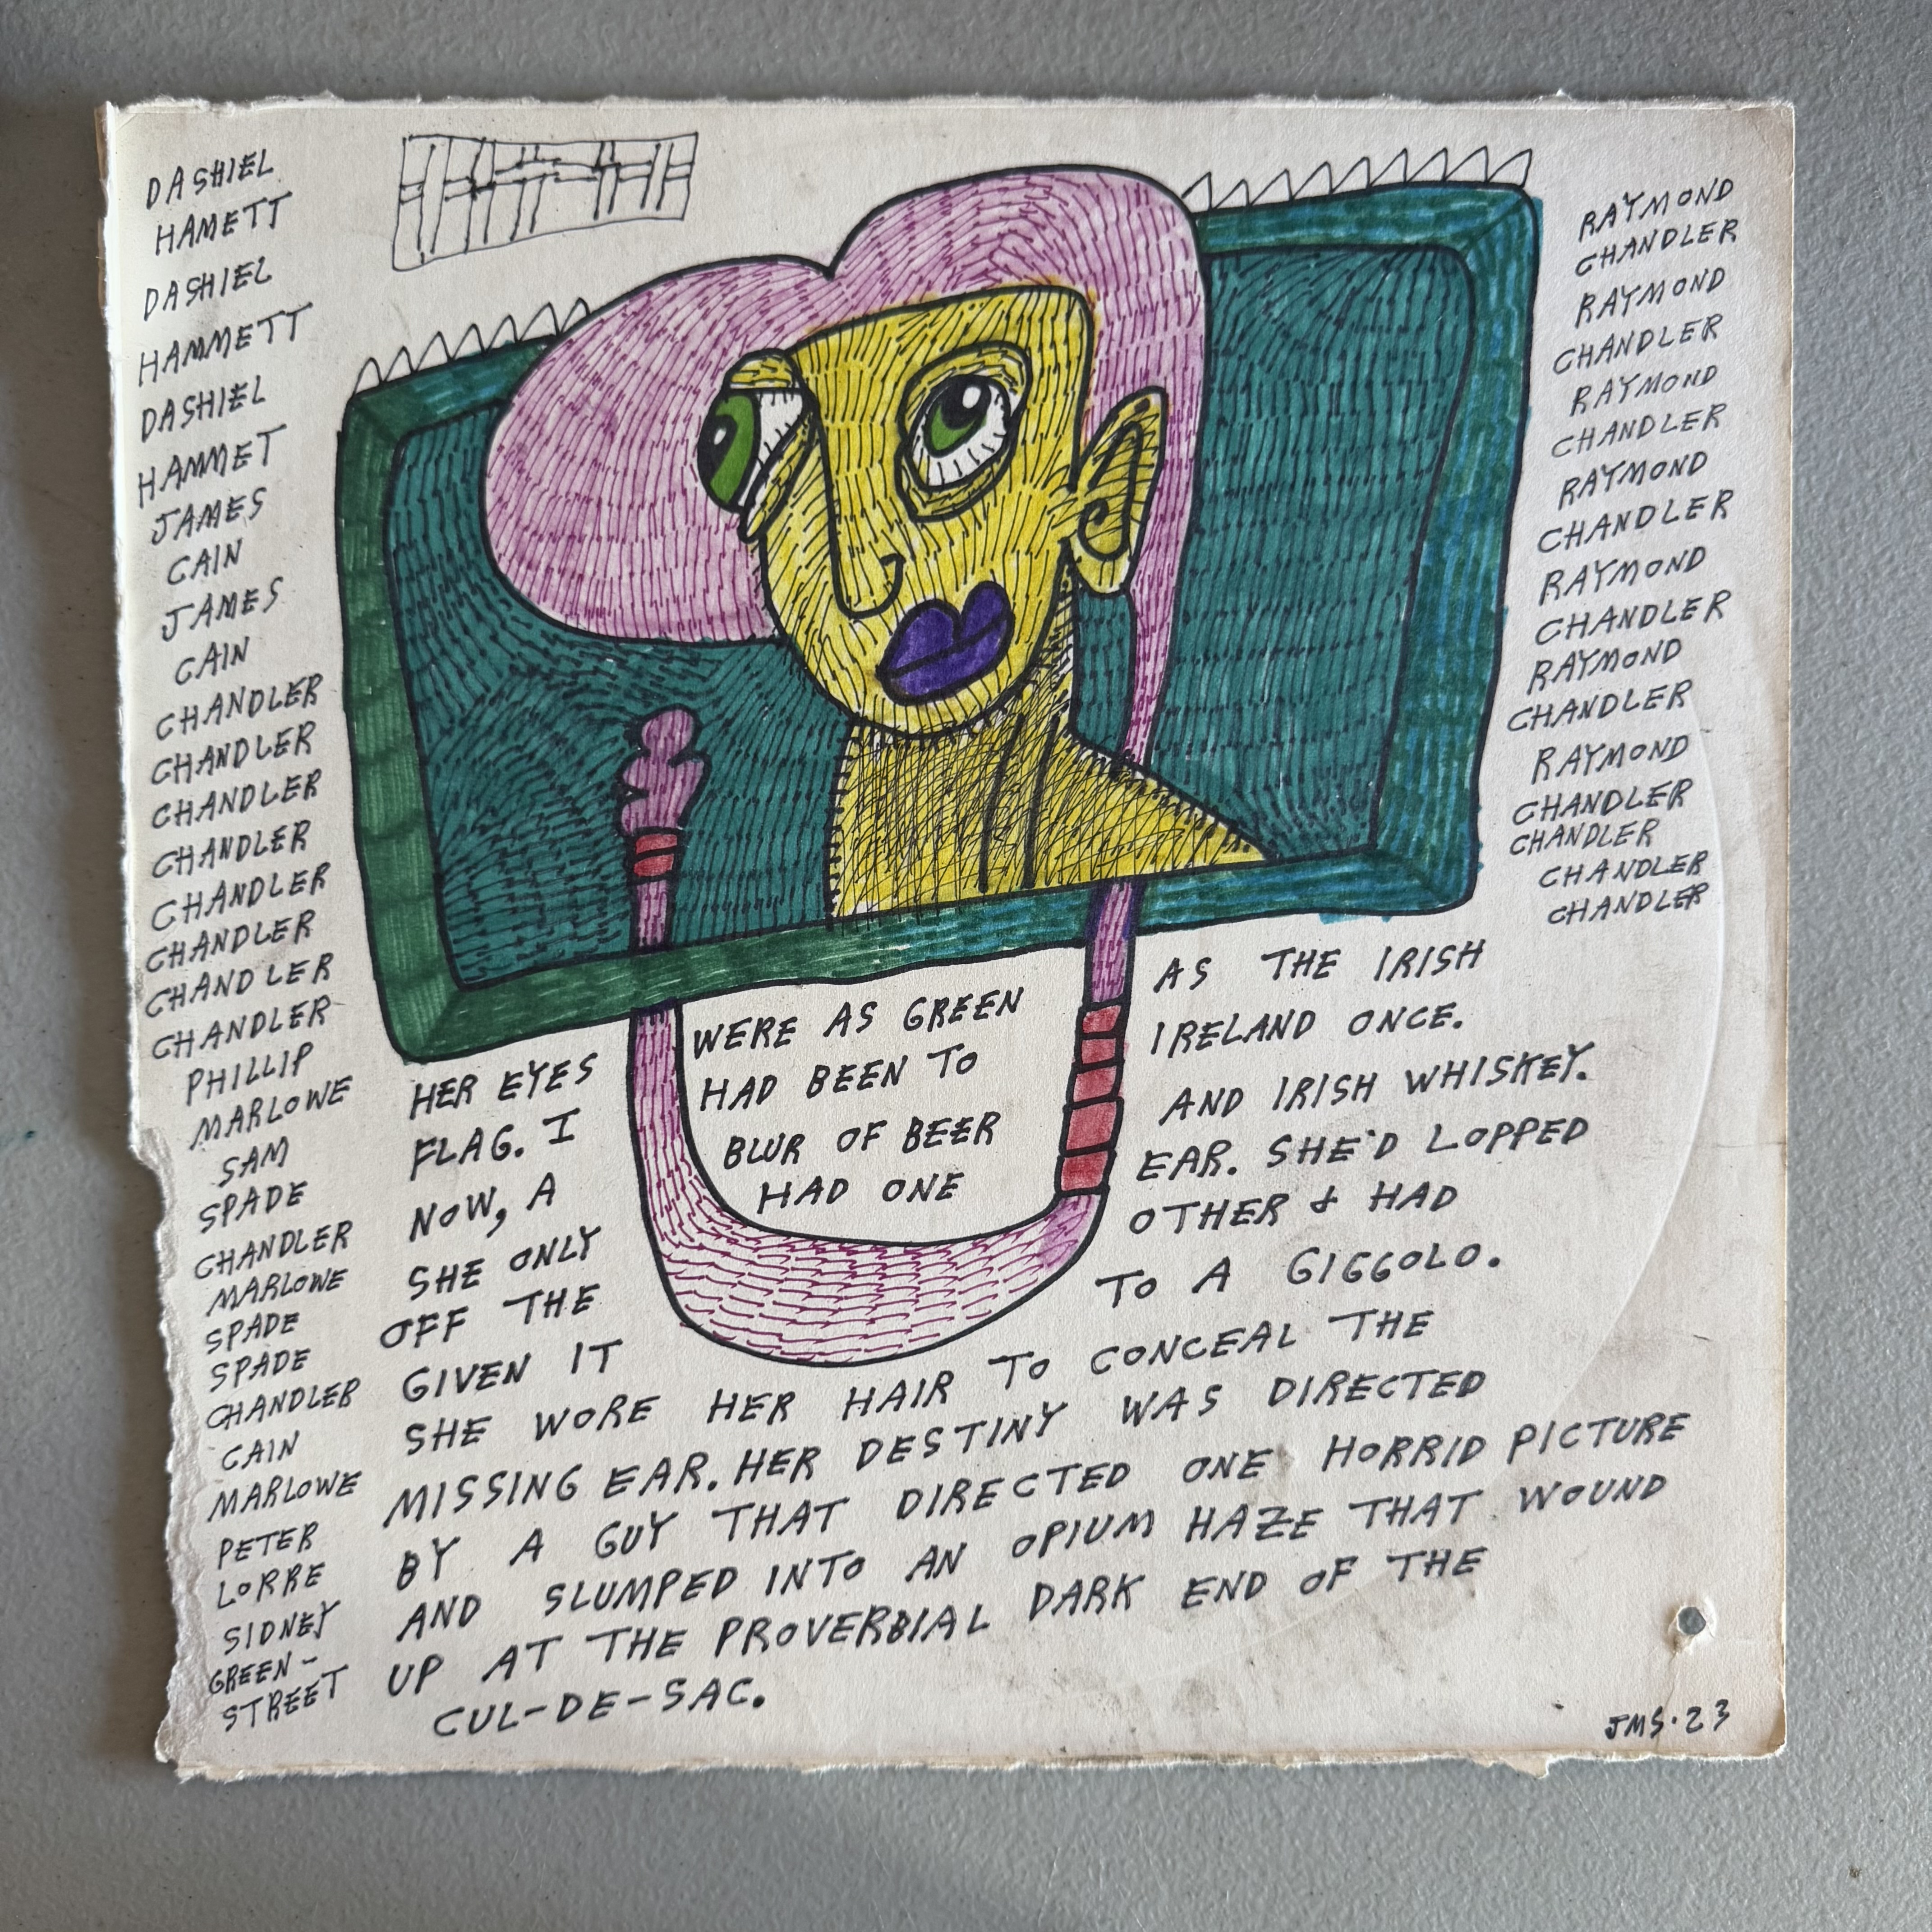 DASHIEL
HAMETT
DASHIEL
HAMMETT
DASHIEL
HAMMET
JAMES
CAIN
JAMES
CAIN
CHANDLER
CHANDLER
CHANDLER
CHANDLER
CHANDLER
CHANDLER
CHANDLER
CHANDLER
PHILLIP
MARLOWE
SAM
SPADE
CHANDLER
MARLOWE
SPADE
SPADE
CHANDLER
CAIN
MARLOWE
PETER
LORRE
SIDNEY
GREEN-
STREET
RAYMOND
CHANDLER
RAYMOND
CHANDLER
RAYMOND
CHANDLER
RAYMOND
CHANDLER
RAYMOND
CHANDLER
RAYMOND
CHANDLER
RAYMOND
CHANDLER
CHANDLER
CHANDLER
CHANDLER
HER EYES WERE AS GREEN AS THE IRISH
FLAG. I HAD BEEN TO IRELAND ONCE.
NOW, A BLUR OF BEER AND IRISH WHISKEY.
SHE ONLY HAD ONE EAR. SHE'D LOPPED
OFF THE OTHER & HAD
GIVEN IT TO A GIGGOLO.
SHE WORE HER HAIR TO CONCEAL THE
MISSING EAR. HER DESTINY WAS DIRECTED
BY A GUY THAT DIRECTED ONE HORRID PICTURE
AND SLUMPED INTO AN OPIUM HAZE THAT WOUND
UP AT THE PROVERBIAL DARK END OF THE
CUL-DE-SAC.
JMS.23